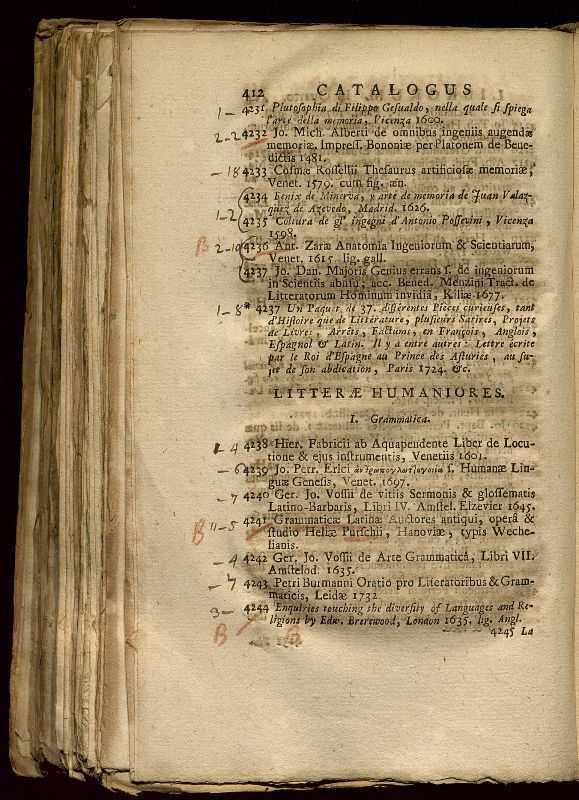 412 CATALOGUS
1 – 4231 Plutosophia di Filippo Gesualdo, nella quale si spiega
l'arte della memoria, Vicenza 1600.
2 – 2 4232 Jo. Mich. Alberti de omnibus ingeniis augendæ
memoriæ. Impress. Bononiæ per Platonem de Bene-
dictis 1481.
– 18 4233 Cosmæ Rossellii Thesaurus artificiosæ memoriæ,
Venet. 1579. cum fig. æn.
4234 Fenix de Minerva, y arte de memoria de Juan Valaz-
quez de Azevedo. Madrid. 1626.
1 – 2 4235 Coltura de gl' ingegni d'Antonio Possevini, Vicenza
1598.
B 2 – 10 4236 Ant. Zaræ Anatomia Ingeniorum & Scientiarum,
Venet. 1615. lig. gall.
4237 Jo. Dan. Majoris Genius errans s. de ingeniorum
in Scientiis abusu; acc. Bened. Menzini Tract. de
Litteratorum Hominum invidia, Kiliæ 1677.
1 – 8 * 4237 Un Paquet de 37. différentes Pièces curieuses, tant
d'Histoire que de Littérature, plusieurs Satires, Projets
de Livres, Arrêts, Factums, en François, Anglois,
Espagnol & Latin. Il y a entre autres: Lettre écrite
par le Roi d'Espagne au Prince des Asturies, au su-
jet de son abdication, Paris 1724. &c.
LITTERÆ HUMANIORES.
I. Grammatica.
1 – 4 4238 Hier. Fabricii ab Aquapendente Liber de Locu-
tione & ejus instrumentis, Venetiis 1601.
– 6 4239 Jo. Petr. Erici ἀνθρωπογλωττογονία s. Humanæ Lin-
guæ Genesis, Venet. 1697.
– 7 4240 Ger. Jo. Vossii de vitiis Sermonis & glossematis
Latino-Barbaris, Libri IV. Amstel. Elzevier 1645.
B 11 – 5 4241 Grammaticæ Latinæ Auctores antiqui, operâ &
studio Heliæ Putschii, Hanoviæ, typis Weche-
lianis.
– 4 4242 Ger. Jo. Vossii de Arte Grammaticâ, Libri VII.
Amstelod. 1635.
– 7 4243 Petri Burmanni Oratio pro Literatoribus & Gram-
maticis, Leidæ 1732
3 – 4244 Enquiries touching the diversity of Languages and Re-
ligions by Edw. Brerewood, London 1635. lig. Angl.
B B 4245 La